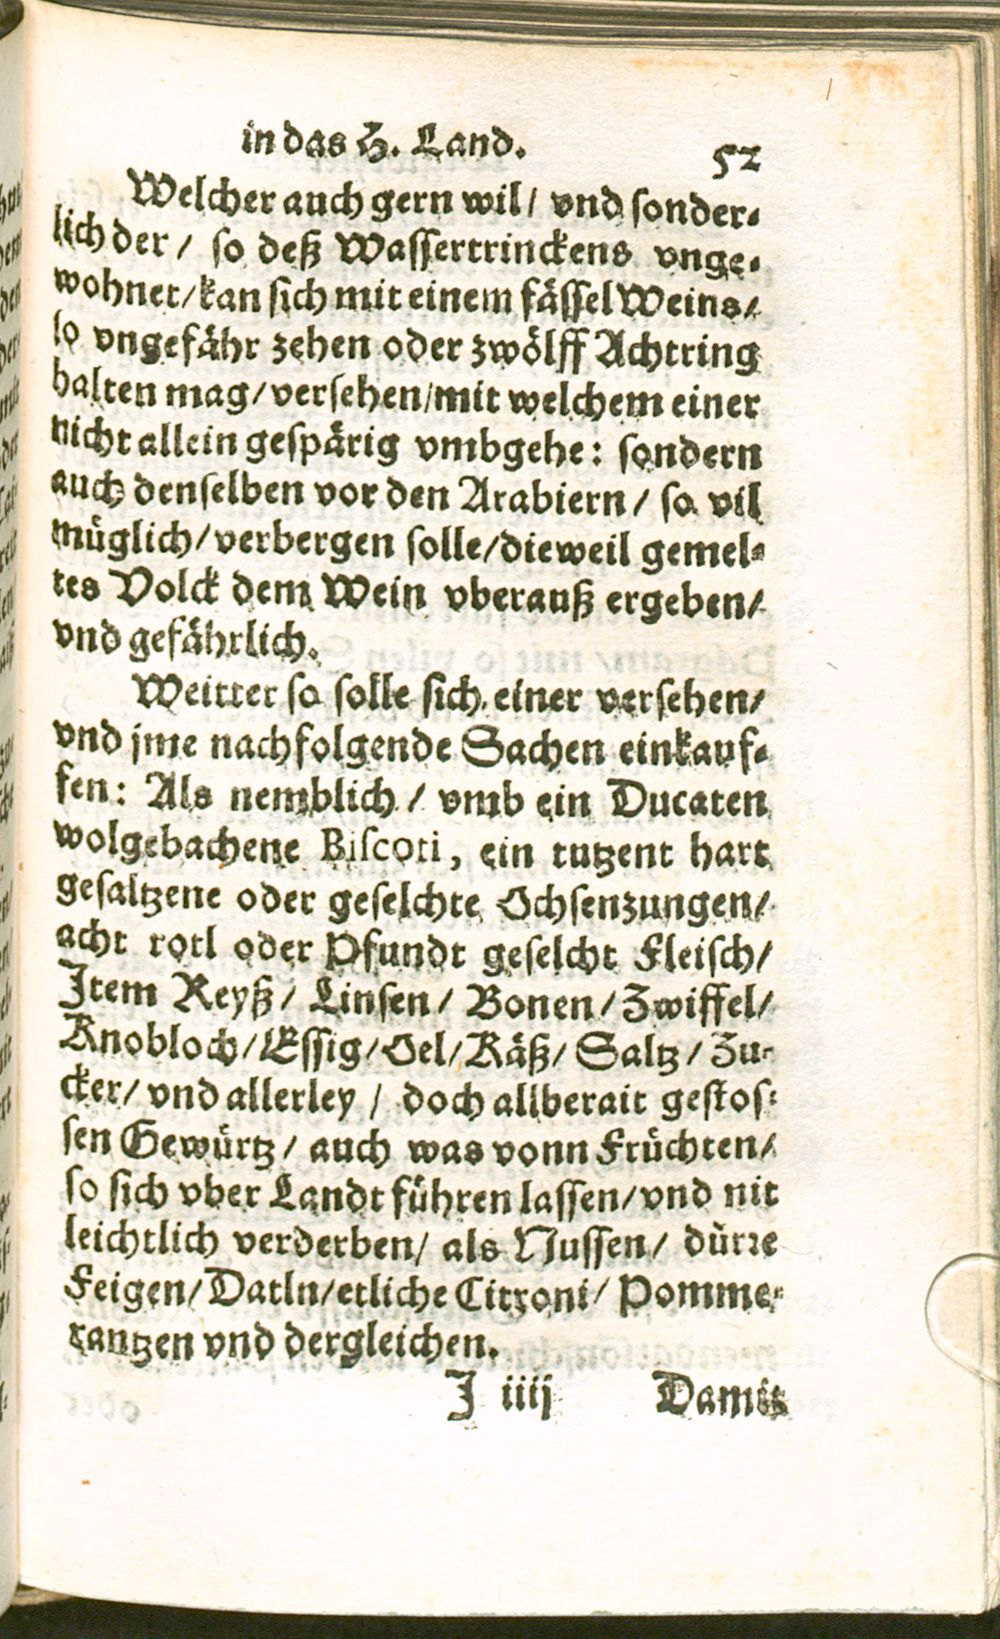 in das H. Land. 52
Welcher auch gern wil/ vnd sonder-
lich der/ so deß Wassertrinckens vnge-
wohnet/kan sich mit einem fässel Weins/
so vngefähr zehen oder zwölff Achtring
halten mag/versehen/mit welchem einer
nicht allein gespärig vmbgehe: sondern
auch denselben vor den Arabiern/ so vil
müglich/verbergen solle/dieweil gemel-
tes Volck dem Wein vberauß ergeben/
vnd gefährlich.
Weitter so solle sich einer versehen/
vnd jme nachfolgende Sachen einkauf-
fen: Als nemblich/ vmb ein Ducaten
wolgebachene Biscoti, ein tutzent hart
gesaltzene oder geselchte Ochsenzungen/
acht rotl oder Pfundt geselcht Fleisch/
Item Reyß/ Linsen/ Bonen/ Zwiffel/
Knobloch/Essig/Oel/Käß/ Saltz/ Zu-
cker/ vnd allerley/ doch allberait gestos-
sen Gewürtz/ auch was vonn Früchten/
so sich vber Landt führen lassen/vnd nit
leichtlich verderben/ als Nussen/ dürre
Feigen/Datln/etliche Citroni/ Pomme-
rantzen vnd dergleichen.
J iiij Damit